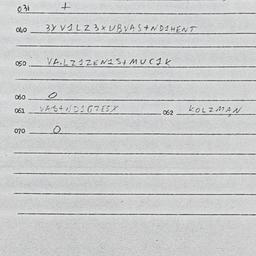 031 +
040 3XV1LZ3XUBVAS+ND1HENT
050 VA.LZ1ZEN1S+MUC1K
060 0
061 VAS+ND1GTESX 062 KOLZMAN
070 0